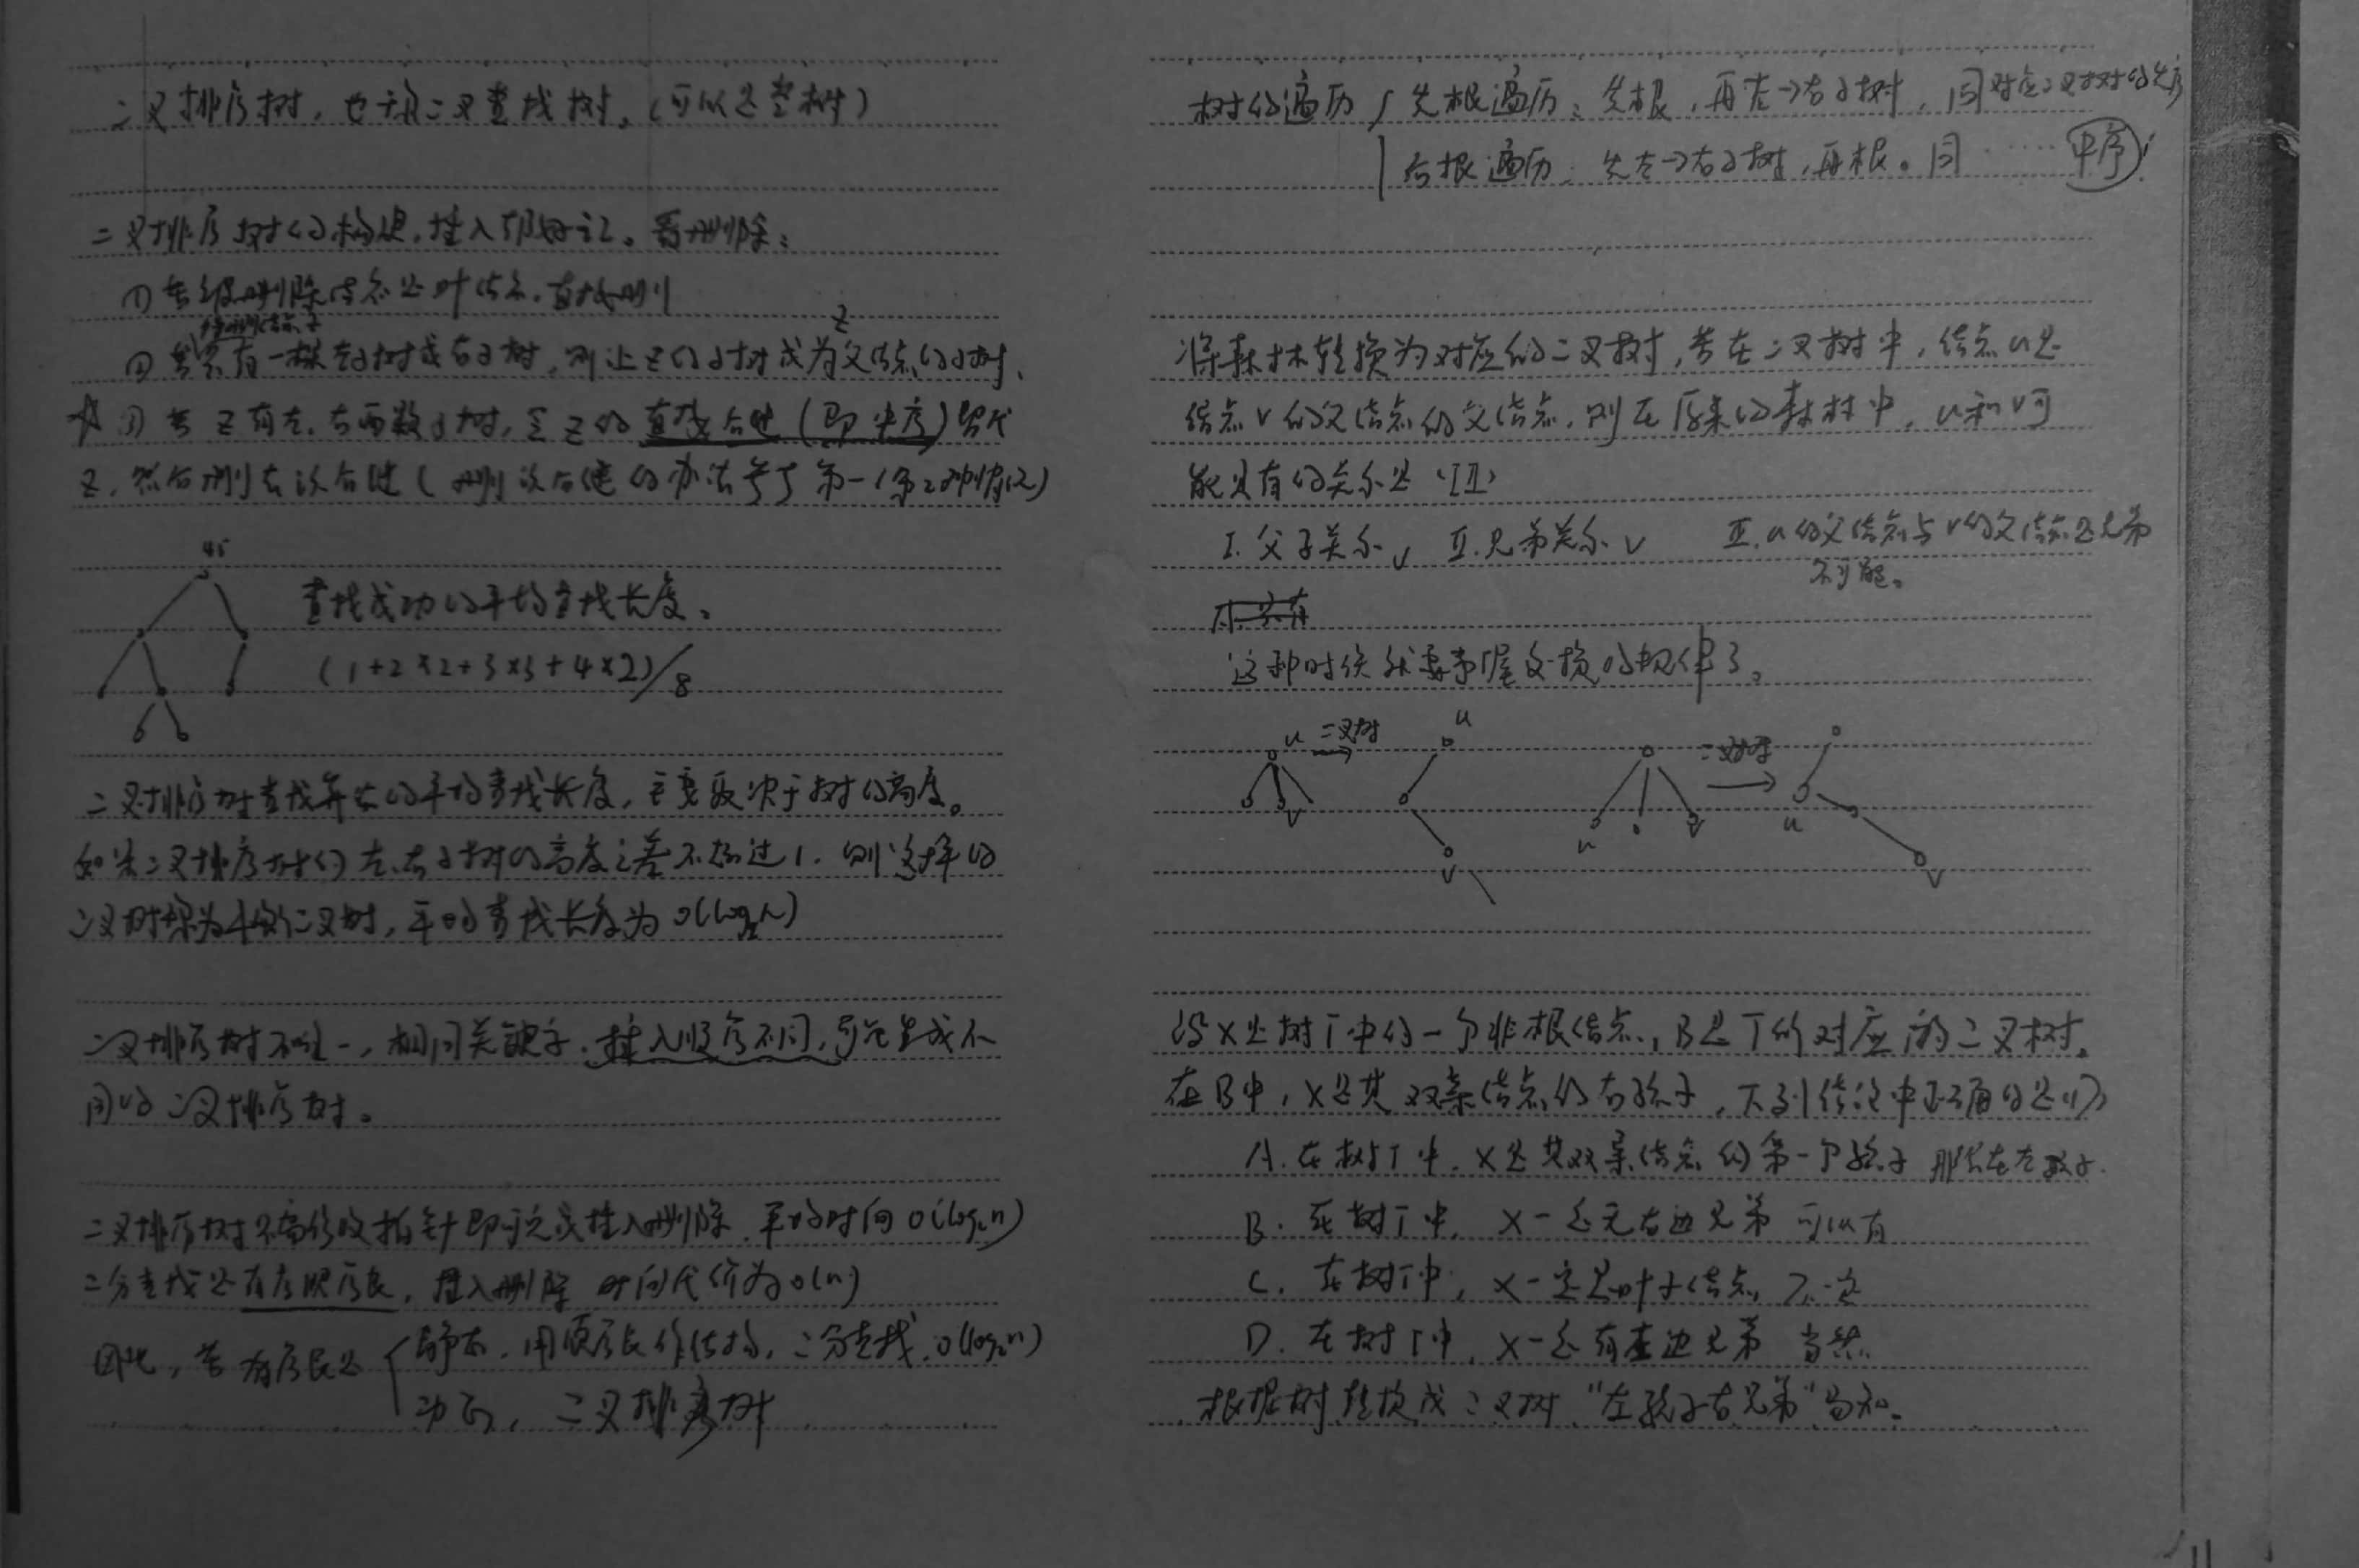 二叉排序树，也称二叉查找树。（可以是空树）
二叉排序树的构建，插入都好记。看删除：
① 若被删除结点是叶结点，直接删
待删结点z
② 若只有一棵左子树或右子树，则让z的子树成为z父结点的子树、
☆③ 若z有左、右两数子树，令z的直接后继（即中序）替代
z，然后删去该后继（删该后继的办法等于第一（第2种情况）
45
查找成功的平均查找长度。
(1+2×2+3×3+4×2)/8
二叉排序树查找算法的平均查找长度，主要取决于树的高度。
如果二叉排序树的左、右子树的高度之差不超过1，则这样的
二叉树称为平衡二叉树，平均查找长度为O(log₂n)
二叉排序树不唯一，相同关键字，插入顺序不同，可能生成不
同的二叉排序树。
二叉排序树只需修改指针即可完成插入删除，平均时间O(log₂n)
二分查找是有序顺序表，插入删除 时间代价为O(n)
因此，若有序表是 { 静态，用顺序表作结构，二分查找，O(log₂n)
动态，二叉排序树
树的遍历 { 先根遍历：先根，再左→右子树，同对应二叉树的先序
后根遍历：先左→右子树，再根。同 …… 中序！
将森林转换为对应的二叉树，若在二叉树中，结点u是
结点v的父结点的父结点，则在原来的森林中，u和v可
能具有的关系是（I II）
I. 父子关系√ II. 兄弟关系√ III. u的父结点与v的父结点是兄弟
不可能。
这种时候就要掌握交换的规律了。
u 二叉树 u 二叉树
v u v u
v v
设X是树T中的一个非根结点，B是T所对应的二叉树。
在B中，X是其双亲结点的右孩子，下列结论中正确的是(D)
A. 在树T中，X是其双亲结点的第一个孩子 那是在左孩子.
B. 在树T中，X一定无右边兄弟 可以有
C. 在树T中，X一定是叶子结点 不一定
D. 在树T中，X一定有左边兄弟 当然.
根据树转换成二叉树"左孩子右兄弟"可知。